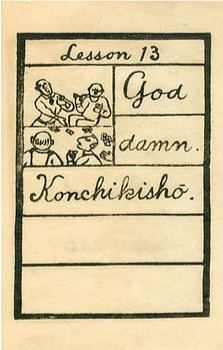 Lesson 13
God
damn.
Konchikishō.